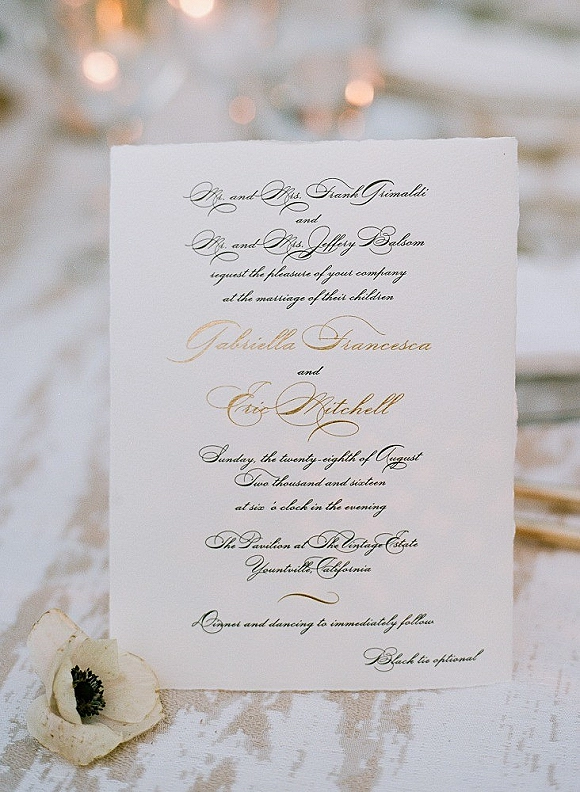 Mr. and Mrs. Frank Grimaldi
and
Mr. and Mrs. Jeffery Balsom
request the pleasure of your company
at the marriage of their children
Gabriella Francesca
and
Eric Mitchell
Sunday, the twenty-eighth of August
Two thousand and sixteen
at six 'o clock in the evening
The Pavilion at The Vintage Estate
Yountville, California
Dinner and dancing to immediately follow
Black tie optional